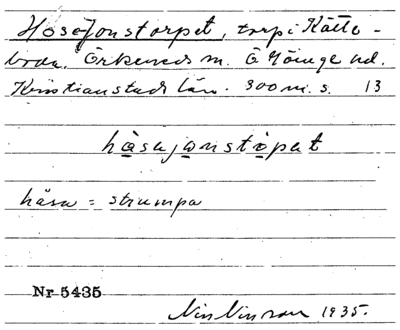 Hosajonstorpet, torp i Kätte-
boda. Örkeneds sn. Ö Göinge hd.
Kristianstads län. 300 m. s. 13
håsajonstòpat
håsa = strumpa
Nr 5435
1935.